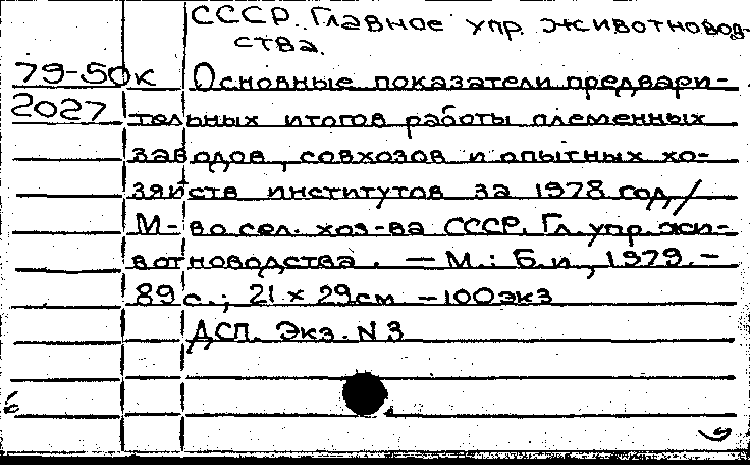 СССР. Главное упр. животновод-
ства.
79-50к Основные показатели предвари-
2027 тельных итогов работы племенных
заводов, совхозов и опытных хо-
зяйств институтов за 1978 год /
М-во сел. хоз-ва СССР. Гл. упр. жи-
вотноводства. — М.: Б.и., 1979. –
89 с.; 21 × 29см – 100экз
ДСП. Экз. N 3